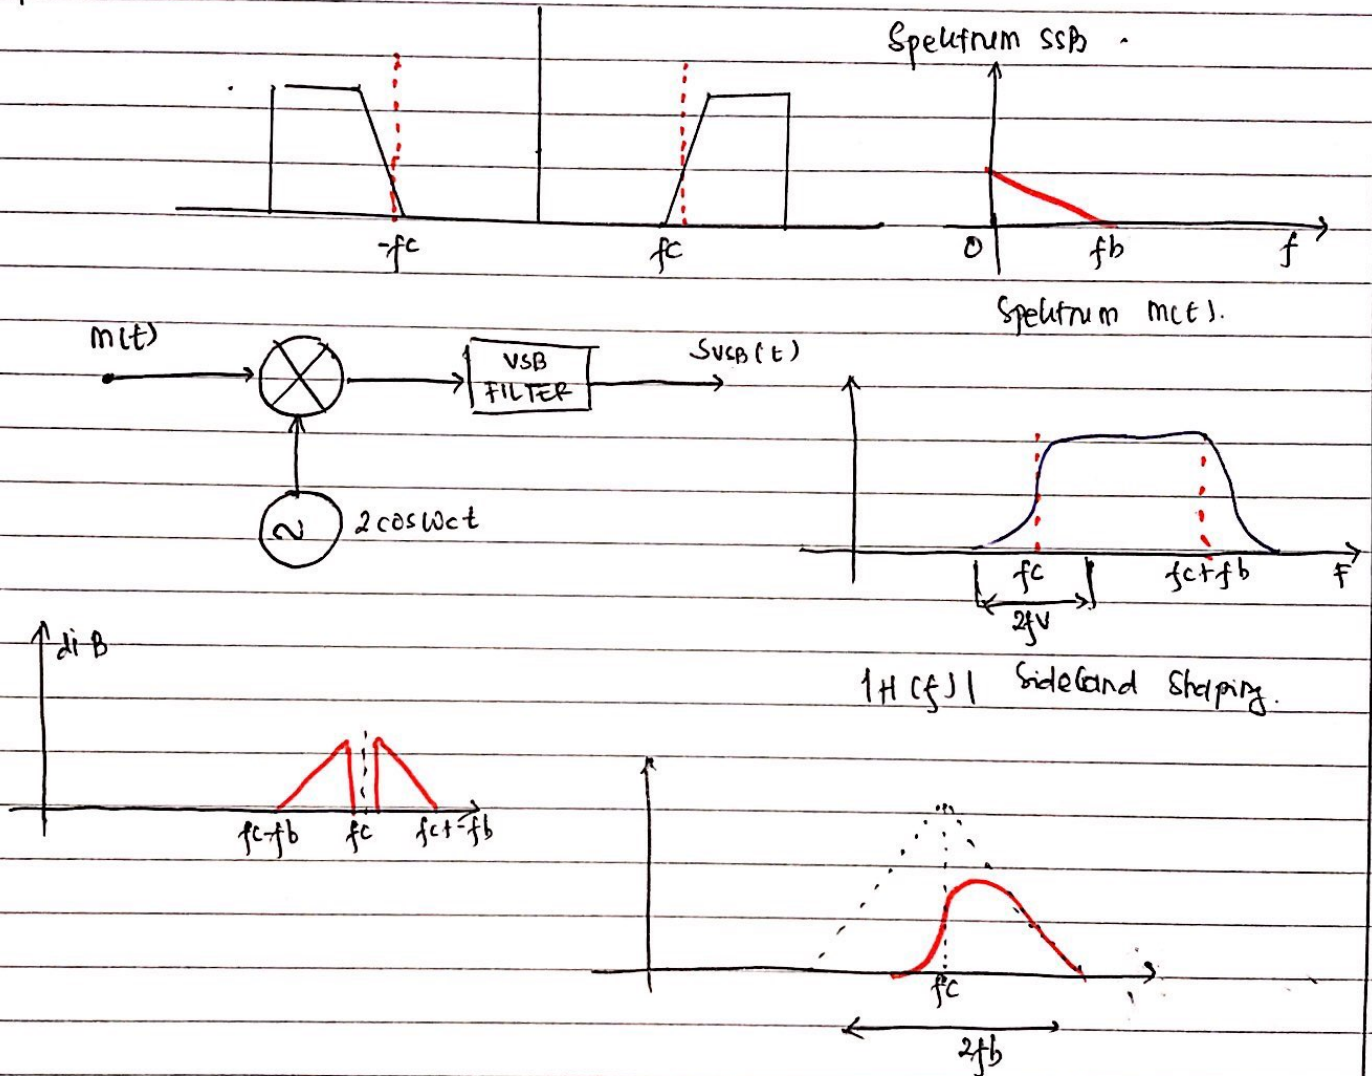 Spektrum SSB .
-fc
fc
0
fb
f
Spektrum m(t).
m(t)
VSB
FILTER
SVSB(t)
2 cos Wct
fc
fc+fb
F
2fv
|H(f)| Sideband Shaping.
di B
fc-fb
fc
fc+-fb
fc
2fb